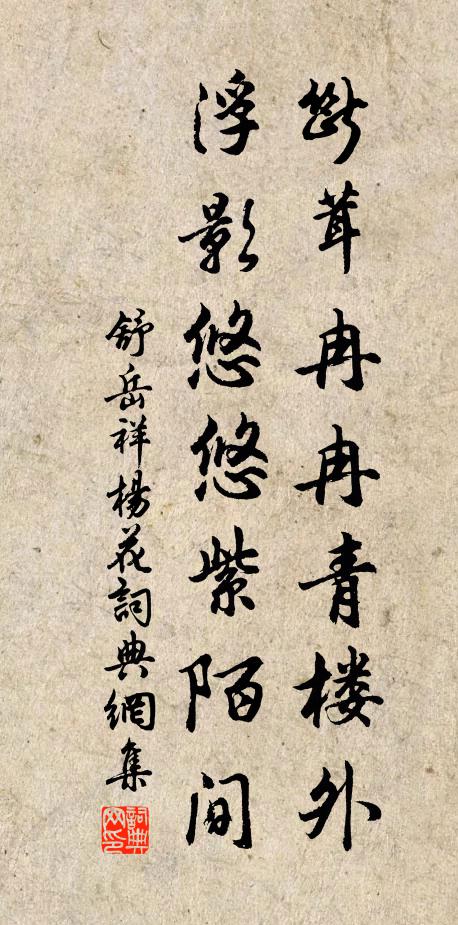 断茸冉冉青楼外
浮影悠悠紫陌间
舒岳祥楊花詞典網集
詞典
网印